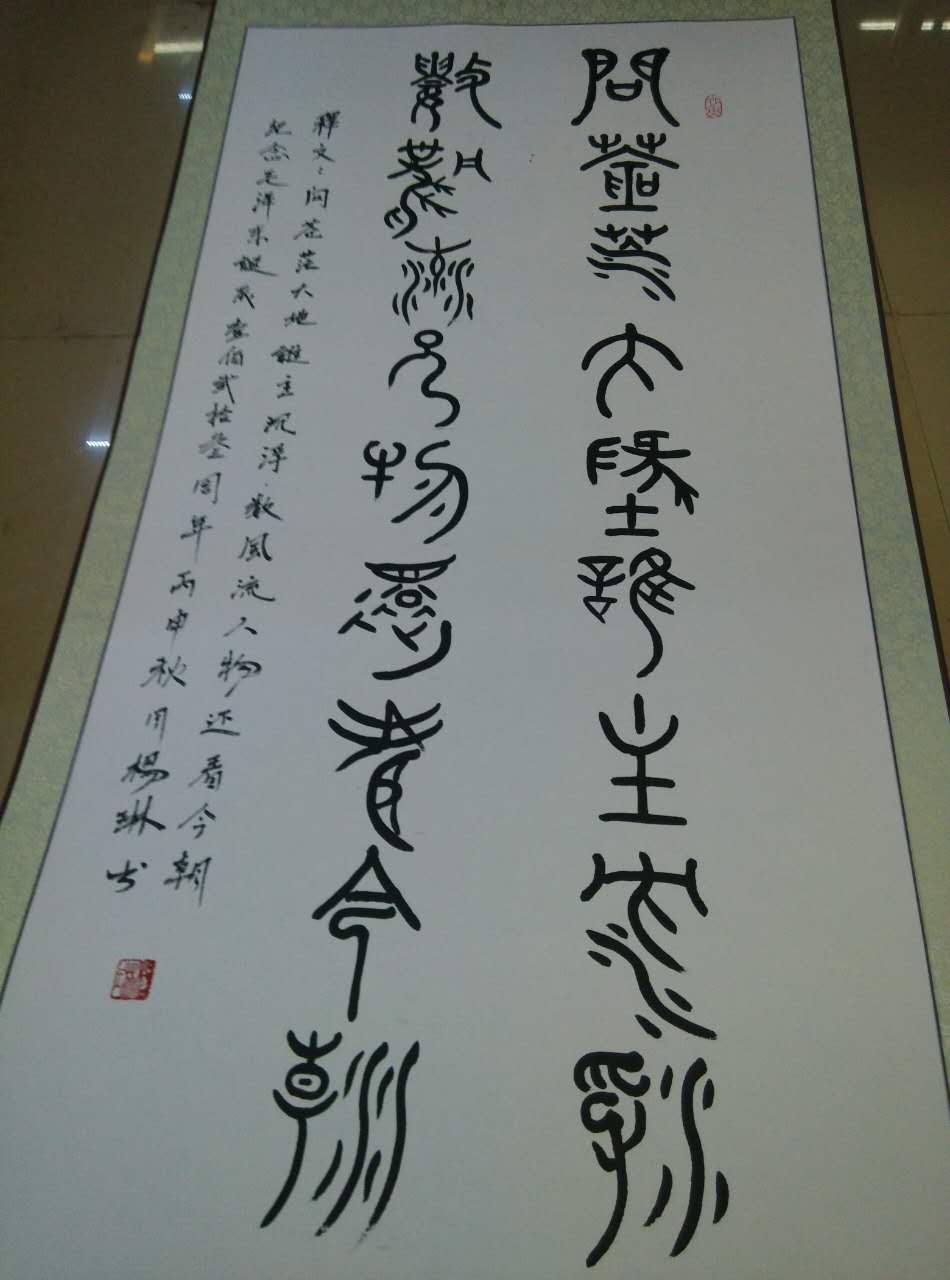 問蒼茫大地誰主沉浮
數風流人物還看今朝
釋文：问苍茫大地誰主沉浮·数風流人物还看今朝
纪念毛泽东誕辰壹佰贰拾叁周年丙申秋月楊琳书